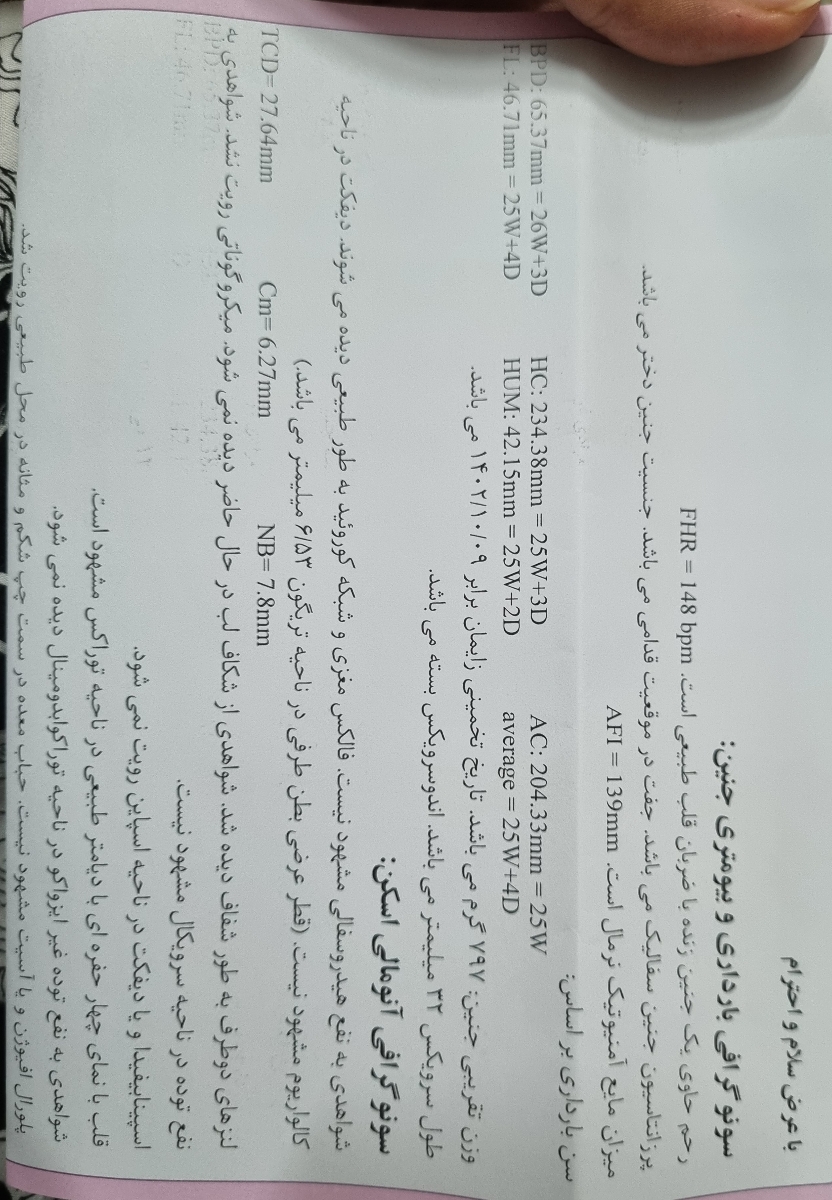 با عرض سلام و احترام
سونوگرافی بارداری و بیومتری جنین:
رحم حاوی یک جنین زنده با ضربان قلب طبیعی است. FHR = 148 bpm
پرزانتاسیون جنین سفالیک می باشد. جفت در موقعیت قدامی می باشد. جنسیت جنین دختر می باشد.
میزان مایع آمنیوتیک نرمال است. AFI = 139mm
سن بارداری بر اساس:
BPD: 65.37mm = 26W+3D HC: 234.38mm = 25W+3D AC: 204.33mm = 25W
FL: 46.71mm = 25W+4D HUM: 42.15mm = 25W+2D average = 25W+4D
وزن تقریبی جنین: ۷۹۷ گرم می باشد. تاریخ تخمینی زایمان برابر ۱۴۰۲/۱۰/۰۹ می باشد.
طول سرویکس ۳۲ میلیمتر می باشد. اندوسرویکس بسته می باشد.
سونوگرافی آنومالی اسکن:
شواهدی به نفع هیدروسفالی مشهود نیست. فالکس مغزی و شبکه کوروئید به طور طبیعی دیده می شوند. دیفکت در ناحیه
کالواریوم مشهود نیست. (قطر عرضی بطن طرفی در ناحیه تریگون ۶/۵۳ میلیمتر می باشد.)
TCD= 27.64mm Cm= 6.27mm NB= 7.8mm
لنزهای دوطرف به طور شفاف دیده شد. شواهدی از شکاف لب در حال حاضر دیده نمی شود. میکروگوناتی رویت نشد. شواهدی به
نفع توده در ناحیه سرویکال مشهود نیست.
اسپینابیفیدا و یا دیفکت در ناحیه اسپاین رویت نمی شود.
قلب با نمای چهار حفره ای با دیامتر طبیعی در ناحیه توراکس مشهود است.
شواهدی به نفع توده غیر ایزواکو در ناحیه توراکوابدومینال دیده نمی شود.
پلورال افیوژن و یا آسیت مشهود نیست. حباب معده در سمت چپ شکم و مثانه در محل طبیعی رویت شد.